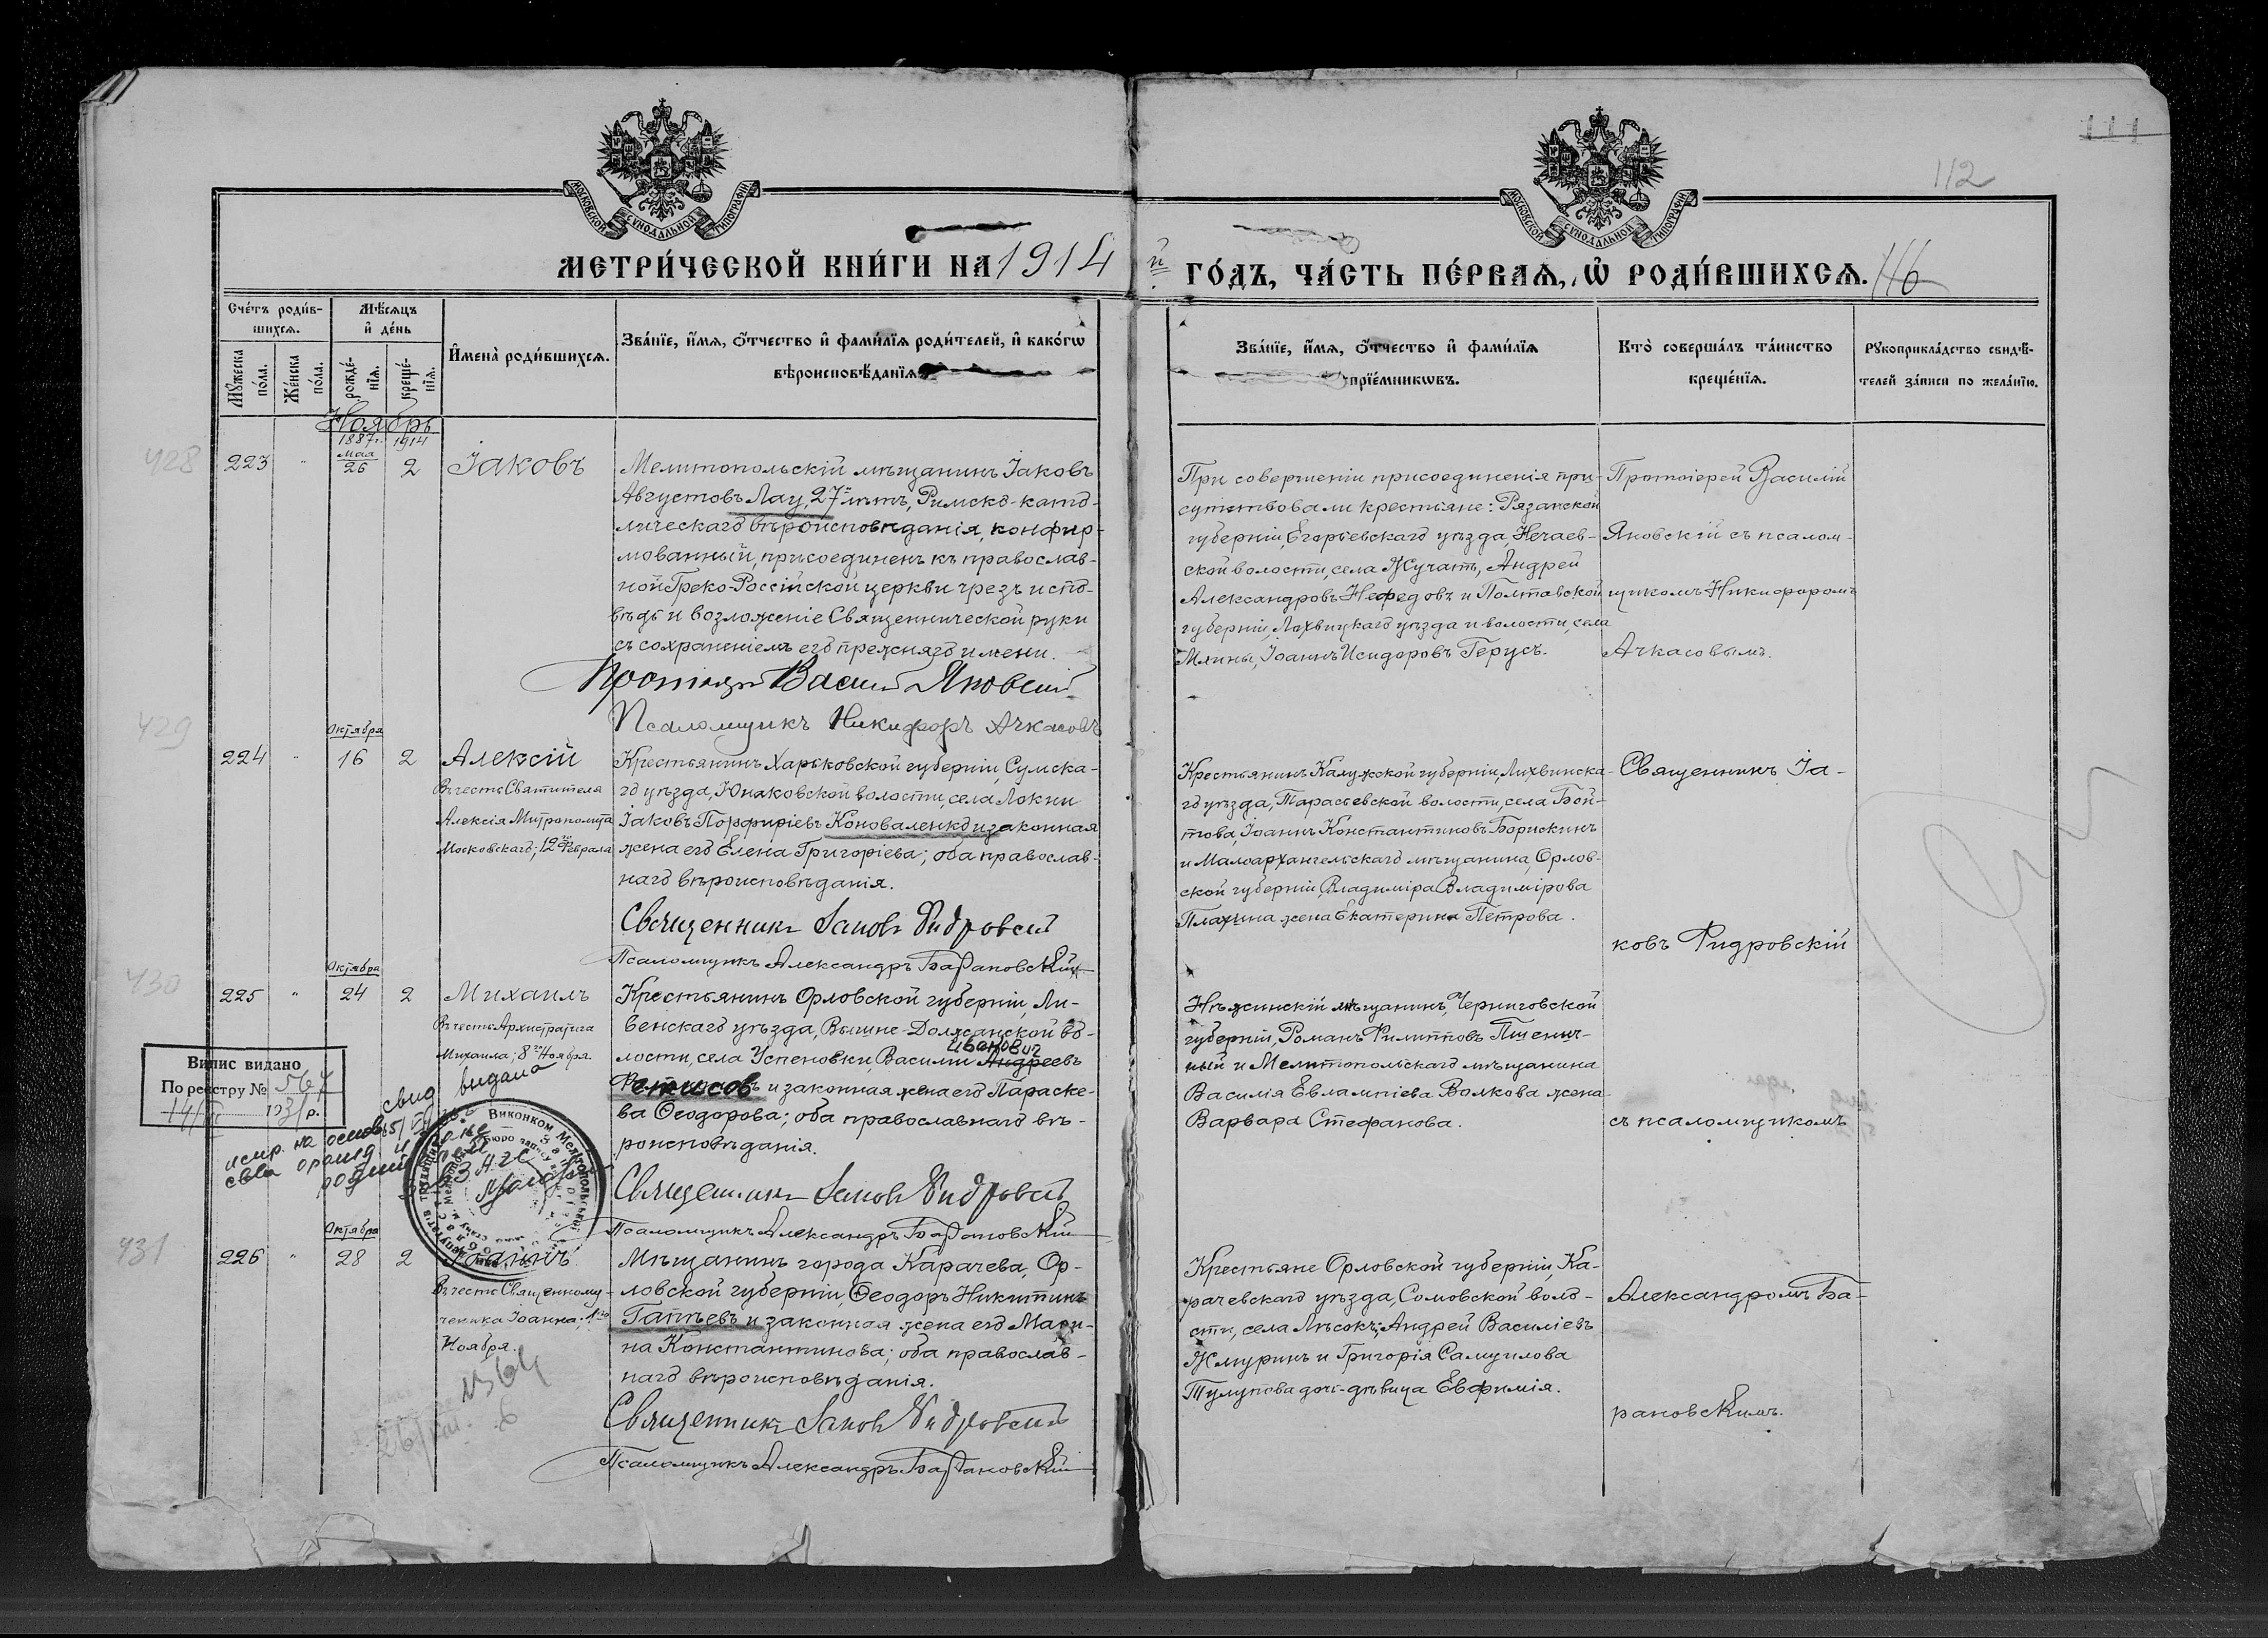 111
112
116
МОСКОВСКОЙ СУНОДАЛЬНОЙ ТИПОГРАФІИ
МОСКОВСКОЙ СУНОДАЛЬНОЙ ТИПОГРАФІИ
МЕТРИ́ЧЕСКОЙ КНИ́ГИ НА 1914
й ГО́ДЪ, ЧА́СТЬ ПЕ́РВАЯ, Ѡ РОДИ́ВШИХСЯ.
Сче́тъ роди́в-
шихся.
Мѣ́сяцъ
и де́нь
Мꙋжеска
по́ла.
Же́нска
пола.
рожде́-
нїя.
креще́-
нїя.
Имена̀ роди́вшихся.
Зва́нїе, и́мя, ѻ́тчество и фами́лїя роди́телей, и како́гѡ
вѣроисповѣ́данїя
Зва́нїе, и́мя, ѻ́тчество и фами́лїя
прїе́мникѡвъ.
Кто̀ соверша́лъ та́инство
креще́нїя.
Рꙋкоприкла́дство свидѣ́-
телей за́писи по жела́нїю.
Ноябрь
1887г. 1914
428
223 " Мая 26 2 Іаковъ
Мелитопольскій мѣщанинъ Іаковъ
Августовъ Лау, 27 лѣтъ, Римско-като-
лическаго вѣроисповѣданія, конфир-
мованный, присоединенъ къ православ-
ной Греко-Россійской церкви чрезъ испо-
вѣдь и возложеніе Священнической руки
съ сохраненіемъ его прежняго имени.
Протоіерей Василій Яновскій
Псаломщикъ Никифоръ Ачкасовъ
При совершеніи присоединенія при-
сутствовали крестьяне: Рязанской
губерніи, Егорьевскаго уѣзда, Нечаев-
ской волости, села Жучатъ, Андрей
Александровъ Нефедовъ и Полтавской
губерніи, Лохвицкаго уѣзда и волости, села
Млины, Іоаннъ Исидоровъ Герусъ.
Протоіерей Василій
Яновскій съ псалом-
щикомъ Никифоромъ
Ачкасовымъ.
429
Октября
224 " 16 2 Алексій
Въ честь Святителя
Алексія Митрополита
Московскаго; 12го Февраля
Крестьянинъ Харьковской губерніи, Сумска-
го уѣзда, Юнаковской волости, села Локни
Іаковъ Порфиріевъ Коноваленко и законная
жена его Елена Григоріева; оба православ-
наго вѣроисповѣданія.
Священникъ Іаковъ Фидровскій
Псаломщикъ Александръ Барановскій
Крестьянинъ Калужской губерніи, Лихвинска-
го уѣзда, Тарасьевской волости, села Бой-
това, Іоаннъ Константиновъ Борискинъ
и Малоархангельскаго мѣщанина, Орлов-
ской губерніи, Владиміра Владимірова
Плахина жена Екатерина Петрова.
Священникъ Іа-
ковъ Фидровскій
430
Октября
225 " 24 2 Михаилъ
Въ честь Архистратига
Михаила; 8го Ноября.
Крестьянинъ Орловской губерніи, Ли-
венскаго уѣзда, Вышне-Должанской во-
Иванович
лости, села Успеновки, Василій Андреевъ
Фетисов и законная жена его Параске-
ва Ѳеодорова; оба православнаго вѣ-
роисповѣданія.
Священникъ Іаковъ Фидровскій
Псаломщикъ Александръ Барановскій
Нѣжинскій мѣщанинъ, Черниговской
губерніи, Романъ Филипповъ Пшенич-
ный и Мелитопольскаго мѣщанина
Василія Евлампіева Волкова жена
Варвара Стефанова.
съ псаломщикомъ
Випис видано
По реєстру № 567
14/II 1931 р.
свид видана
испр. на основ
Виконком Мелітопольської
431
Октября
226 " 28 2 Іоаннъ
Въ честь Священному-
ченика Іоанна; 1го
Ноября.
Мѣщанинъ города Карачева, Ор-
ловской губерніи, Ѳеодоръ Никитинъ
Гапѣевъ и законная жена его Мари-
на Константинова; оба православ-
наго вѣроисповѣданія.
Священникъ Іаковъ Фидровскій
Псаломщикъ Александръ Барановскій
Крестьяне Орловской губерніи, Ка-
рачевскаго уѣзда, Сомовской воло-
сти, села Лѣсокъ; Андрей Василіевъ
Жмуринъ и Григорія Самуилова
Тулупова дочь-дѣвица Евфимія.
Александромъ Ба-
рановскимъ.